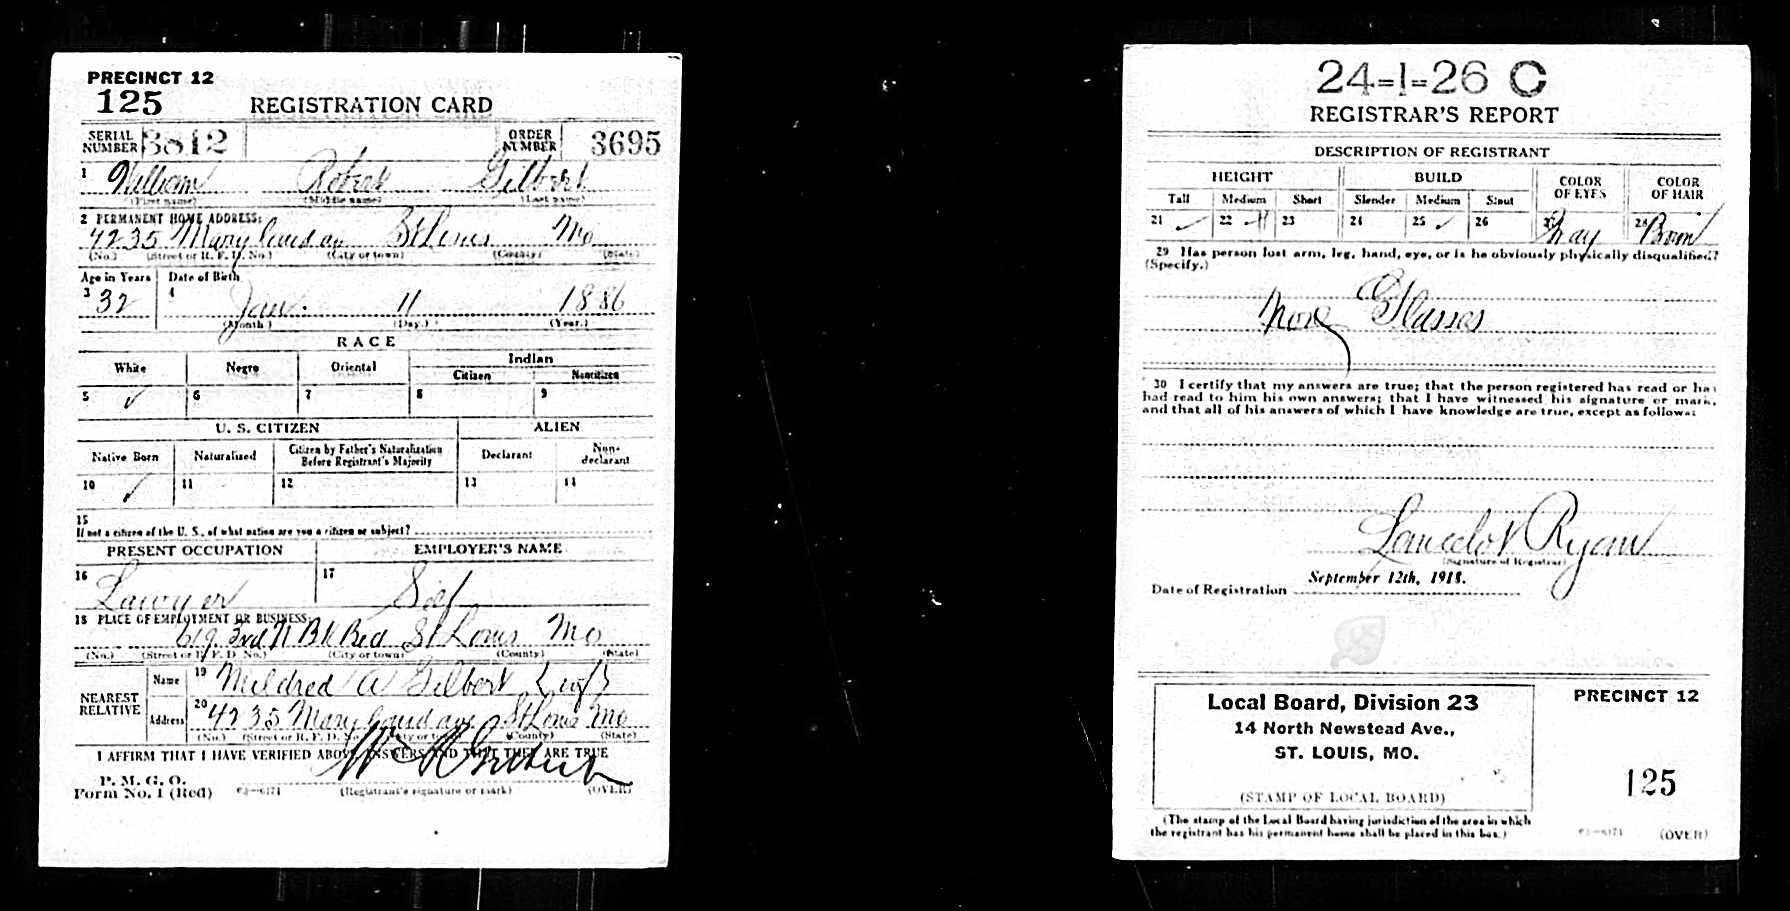 PRECINCT 12
125 REGISTRATION CARD
SERIAL NUMBER 3812 ORDER NUMBER 3695
1 William Robert Gilbert
(First name) (Middle name) (Last name)
2 PERMANENT HOME ADDRESS:
4235 Maryland av St Louis Mo
(No.) (Street or R. F. D. No.) (City or town) (County) (State)
Age in Years Date of Birth
3 32 4 Jan. 11 1886
(Month.) (Day.) (Year.)
RACE
White Negro Oriental Indian
Citizen Noncitizen
5 ✓ 6 7 8 9
U. S. CITIZEN ALIEN
Native Born Naturalized Citizen by Father's Naturalization Before Registrant's Majority Declarant Non-declarant
10 ✓ 11 12 13 14
15
If not a citizen of the U. S., of what nation are you a citizen or subject?
PRESENT OCCUPATION EMPLOYER'S NAME
16 Lawyer 17 Self
18 PLACE OF EMPLOYMENT OR BUSINESS:
619 3rd N Bk St Louis Mo
(No.) (Street or R. F. D. No.) (City or town) (County) (State)
NEAREST RELATIVE
Name 19 Mildred A Gilbert
Address 20 4235 Maryland ave St Louis Mo
(No.) (Street or R. F. D. No.) (City or town) (County) (State)
I AFFIRM THAT I HAVE VERIFIED ABOVE ANSWERS AND THAT THEY ARE TRUE
P. M. G. O.
Form No. 1 (Red) 03—6171 (Registrant's signature or mark) (OVER)
24-1-26 C
REGISTRAR'S REPORT
DESCRIPTION OF REGISTRANT
HEIGHT BUILD COLOR OF EYES COLOR OF HAIR
Tall Medium Short Slender Medium Stout
21 ✓ 22 23 24 25 ✓ 26 27 Gray 28 Brown
29 Has person lost arm, leg, hand, eye, or is he obviously physically disqualified?
(Specify.)
None Glasses
30 I certify that my answers are true; that the person registered has read or has
had read to him his own answers; that I have witnessed his signature or mark,
and that all of his answers of which I have knowledge are true, except as follows:
Lancelot Ryan
(Signature of Registrar)
Date of Registration September 12th, 1918.
Local Board, Division 23
14 North Newstead Ave.,
ST. LOUIS, MO.
(STAMP OF LOCAL BOARD)
PRECINCT 12
125
(The stamp of the Local Board having jurisdiction of the area in which
the registrant has his permanent home shall be placed in this box.)
03—6171 (OVER)